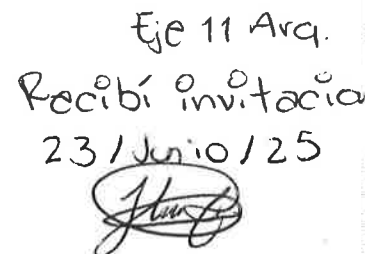 Eje 11 Arq.
Recibí invitacio
23/Junio/25